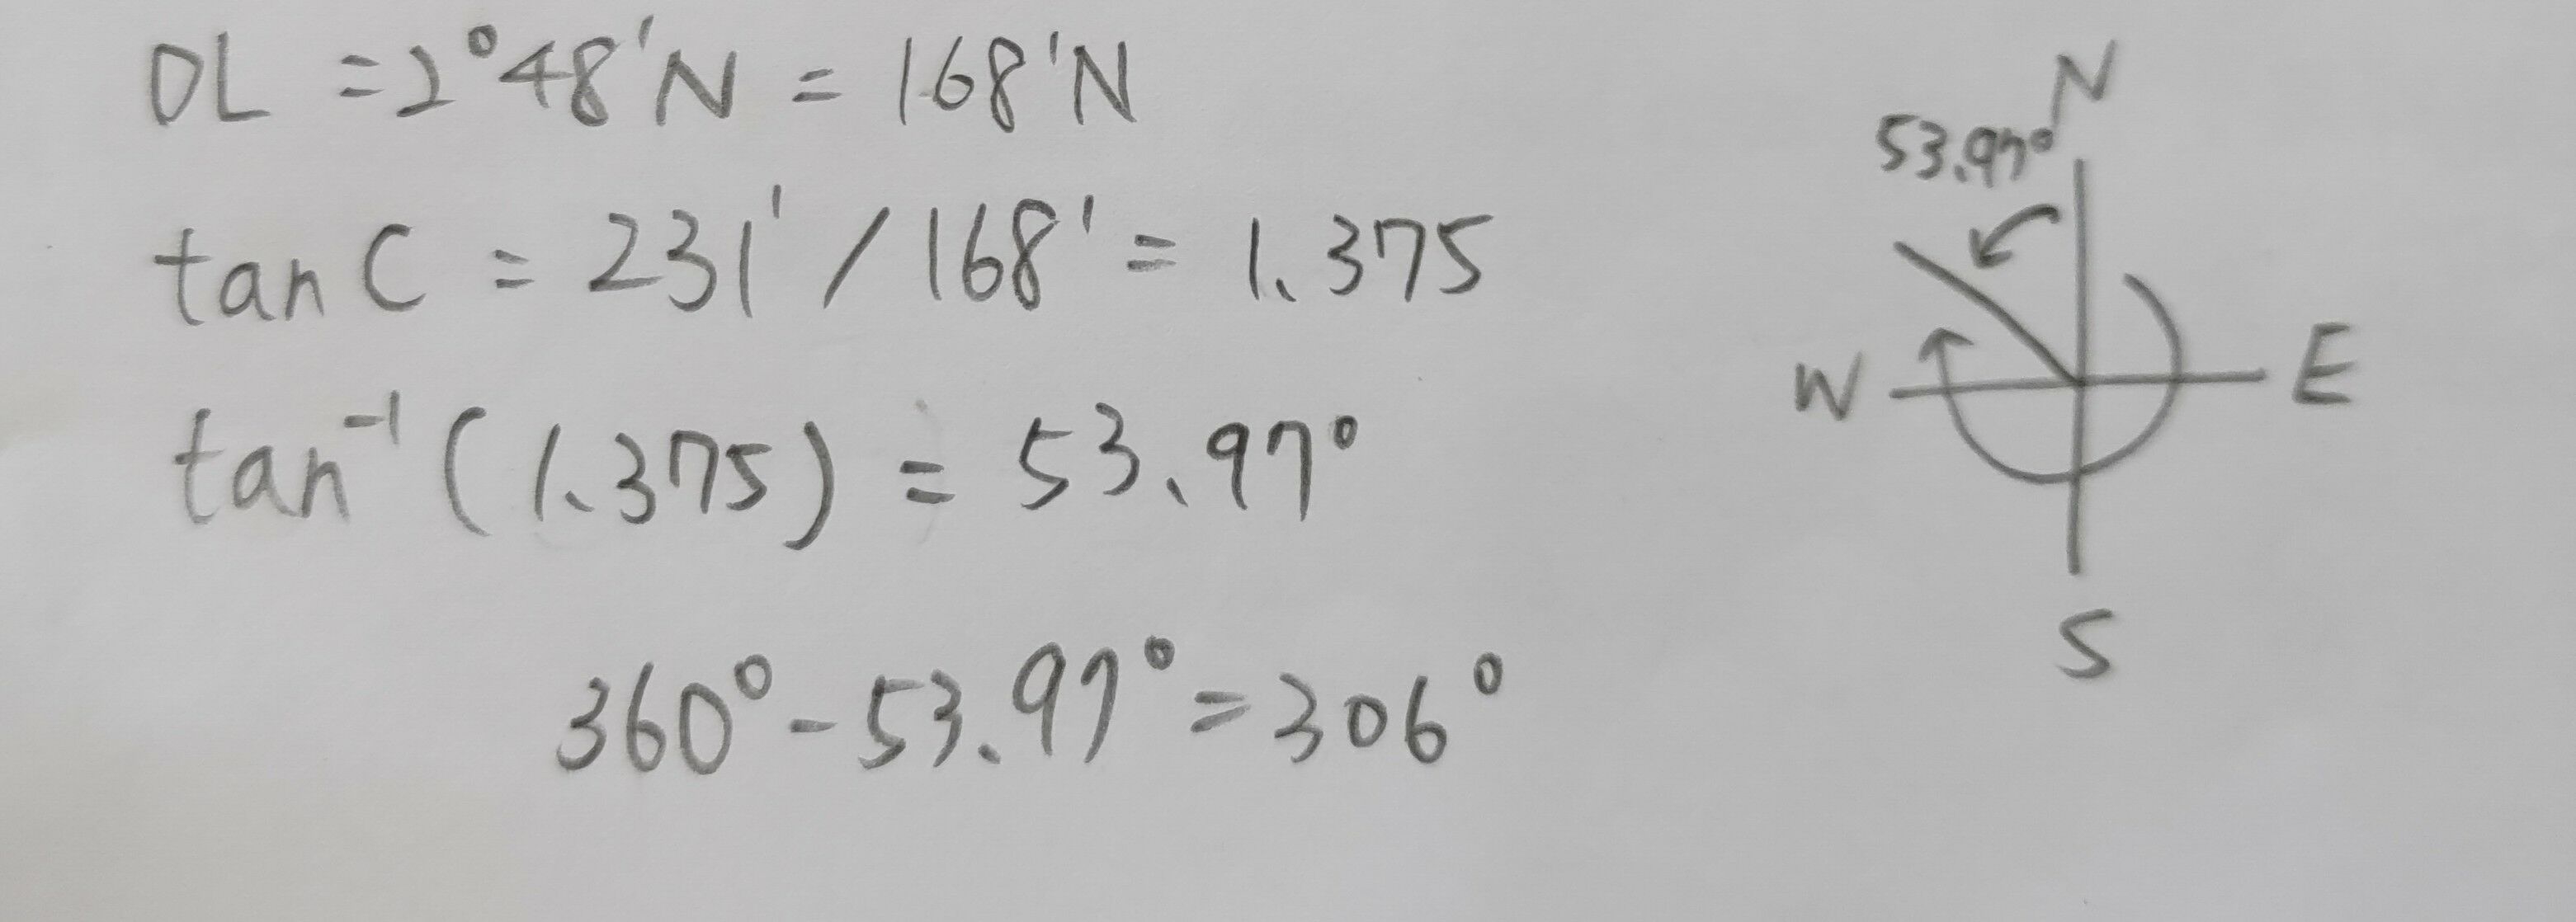 DL = 2°48'N = 168'N
tan C = 231' / 168' = 1.375
tan⁻¹ (1.375) = 53.97°
360° - 53.97° = 306°
N
53.97°
W
E
S